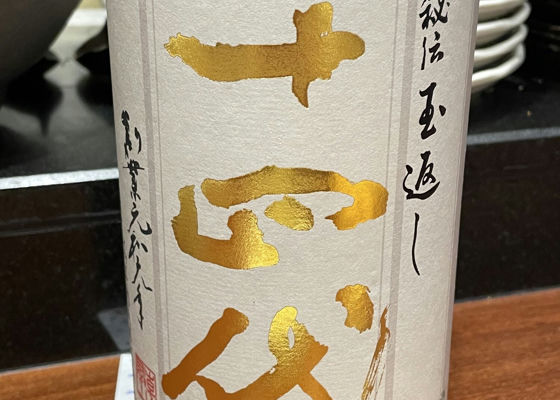 秘伝玉返し
十四代
創業元和元年